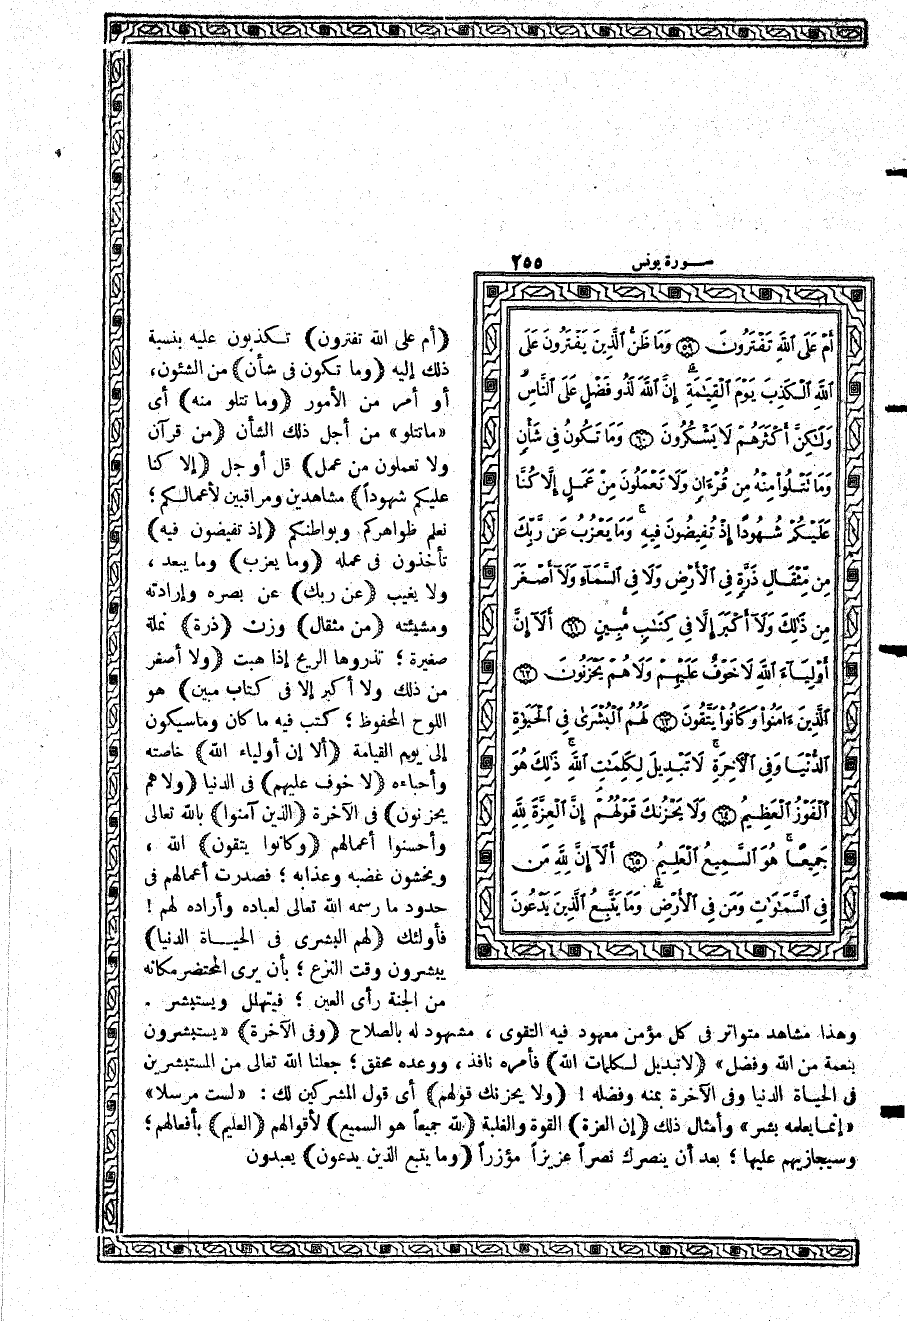 سورة يونس ٢٥٥
أَمْ عَلَى اللَّهِ تَفْتَرُونَ ۝٥٩ وَمَا ظَنُّ الَّذِينَ يَفْتَرُونَ عَلَى
اللَّهِ الْكَذِبَ يَوْمَ الْقِيَٰمَةِ إِنَّ اللَّهَ لَذُو فَضْلٍ عَلَى النَّاسِ
وَلَٰكِنَّ أَكْثَرَهُمْ لَا يَشْكُرُونَ ۝٦٠ وَمَا تَكُونُ فِي شَأْنٍ
وَمَا تَتْلُوا مِنْهُ مِن قُرْءَانٍ وَلَا تَعْمَلُونَ مِنْ عَمَلٍ إِلَّا كُنَّا
عَلَيْكُمْ شُهُودًا إِذْ تُفِيضُونَ فِيهِ وَمَا يَعْزُبُ عَن رَّبِّكَ
مِن مِّثْقَالِ ذَرَّةٍ فِي الْأَرْضِ وَلَا فِي السَّمَاءِ وَلَا أَصْغَرَ
مِن ذَٰلِكَ وَلَا أَكْبَرَ إِلَّا فِي كِتَٰبٍ مُّبِينٍ ۝٦١ أَلَا إِنَّ
أَوْلِيَاءَ اللَّهِ لَا خَوْفٌ عَلَيْهِمْ وَلَا هُمْ يَحْزَنُونَ ۝٦٢
الَّذِينَ ءَامَنُوا وَكَانُوا يَتَّقُونَ ۝٦٣ لَهُمُ الْبُشْرَىٰ فِي الْحَيَوٰةِ
الدُّنْيَا وَفِي الْآخِرَةِ لَا تَبْدِيلَ لِكَلِمَٰتِ اللَّهِ ذَٰلِكَ هُوَ
الْفَوْزُ الْعَظِيمُ ۝٦٤ وَلَا يَحْزُنكَ قَوْلُهُمْ إِنَّ الْعِزَّةَ لِلَّهِ
جَمِيعًا هُوَ السَّمِيعُ الْعَلِيمُ ۝٦٥ أَلَا إِنَّ لِلَّهِ مَن
فِي السَّمَٰوَٰتِ وَمَن فِي الْأَرْضِ وَمَا يَتَّبِعُ الَّذِينَ يَدْعُونَ
(أم على الله تفترون) تكذبون عليه بنسبة
ذلك إليه (وما تكون فى شأن) من الشئون،
أو أمر من الأمور (وما تتلو منه) أى
«ماتتلو» من أجل ذلك الشأن (من قرآن
ولا تعملون من عمل) قل أو جل (إلا كنا
عليكم شهوداً) مشاهدين ومراقبين لأعمالكم؛
نعلم ظواهركم وبواطنكم (إذ تفيضون فيه)
تأخذون فى عمله (وما يعزب) وما يبعد،
ولا يغيب (عن ربك) عن بصره وإرادته
ومشيئته (من مثقال) وزن (ذرة) نملة
صغيرة؛ تذروها الريح إذا هبت (ولا أصغر
من ذلك ولا أكبر إلا فى كتاب مبين) هو
اللوح المحفوظ؛ كتب فيه ماكان وماسيكون
إلى يوم القيامة (ألا إن أولياء الله) خاصته
وأحباءه (لا خوف عليهم) فى الدنيا (ولاهم
يحزنون) فى الآخرة (الذين آمنوا) بالله تعالى
وأحسنوا أعمالهم (وكانوا يتقون) الله،
ويخشون غضبه وعذابه؛ فصدرت أعمالهم فى
حدود ما رسمه الله تعالى لعباده وأراده لهم!
فأولئك (لهم البشرى فى الحياة الدنيا)
يبشرون وقت النزع؛ بأن يرى المحتضر مكانه
من الجنة رأى العين؛ فيتهلل ويستبشر.
وهذا مشاهد متواتر فى كل مؤمن معهود فيه التقوى، مشهود له بالصلاح (وفى الآخرة) «يستبشرون
بنعمة من الله وفضل» (لاتبديل لكلمات الله) فأمره نافذ، ووعده محقق؛ جعلنا الله تعالى من المستبشرين
فى الحياة الدنيا وفى الآخرة بمنه وفضله! (ولا يحزنك قولهم) أى قول المشركين لك: «لست مرسلا»
«إنما يعلمه بشر» وأمثال ذلك (إن العزة) القوة والغلبة (لله جميعاً هو السميع) لأقوالهم (العليم) بأفعالهم؛
وسيجازيهم عليها؛ بعد أن ينصرك نصراً عزيزاً مؤزراً (وما يتبع الذين يدعون) يعبدون